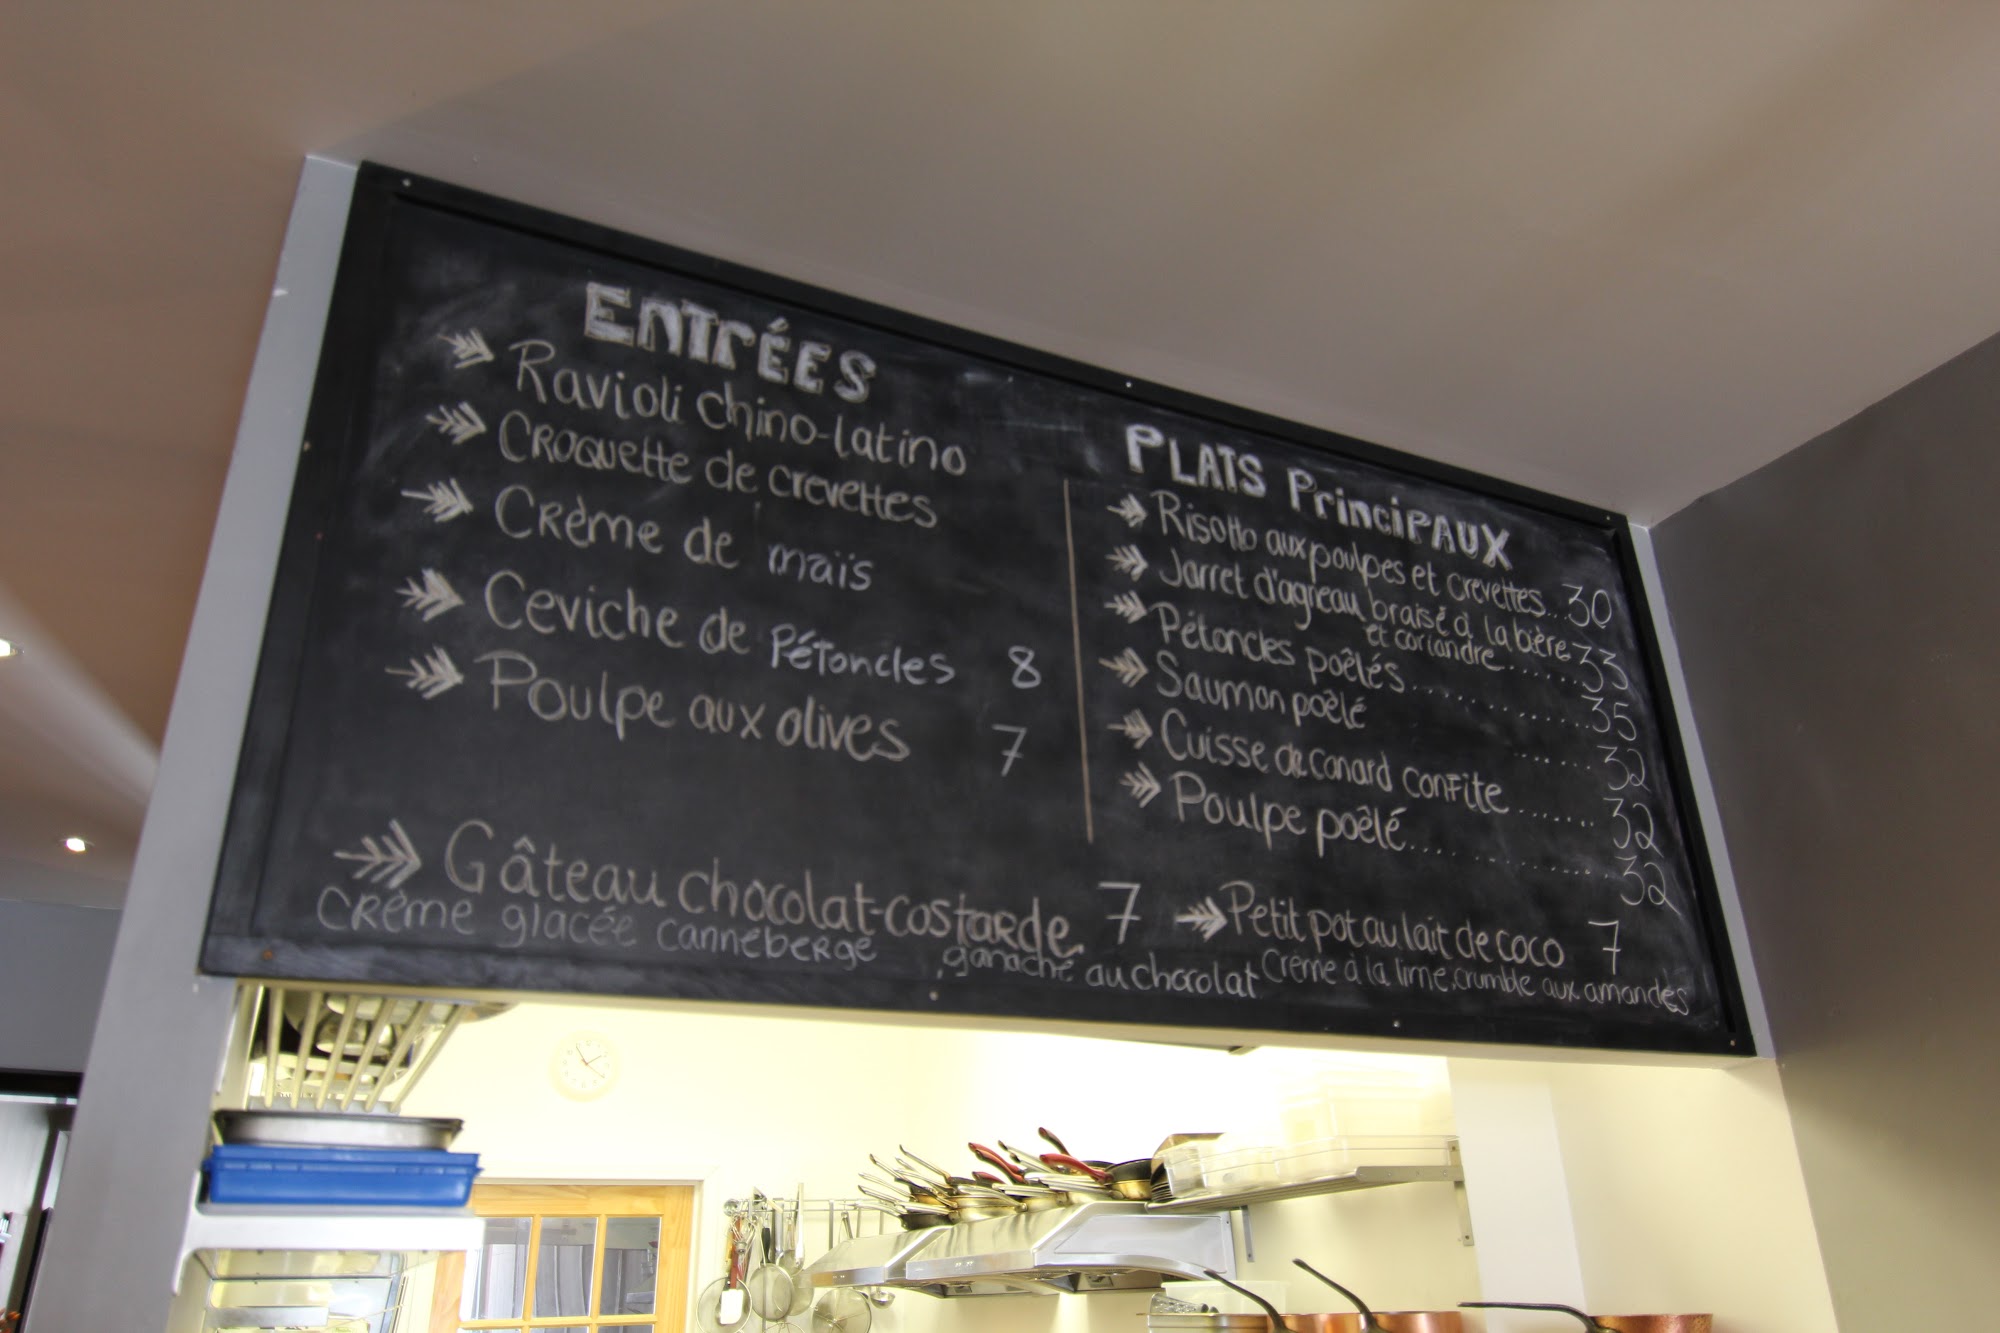 ENTRÉES
Ravioli chino-latino
Croquette de crevettes
Crème de maïs
Ceviche de Pétoncles 8
Poulpe aux olives 7
PLATS PrinciPAUX
Risotto aux poulpes et crevettes...30
Jarret d'agneau braisé à la bière
et coriandre.......33
Pétoncles poêlés..............35
Saumon poêlé ......32
Cuisse de canard confite.......32
Poulpe poêlé..............32
Gâteau chocolat-costarde 7
Crème glacée canneberge, ganache au chocolat
Petit pot au lait de coco 7
Crème à la lime, crumble aux amandes